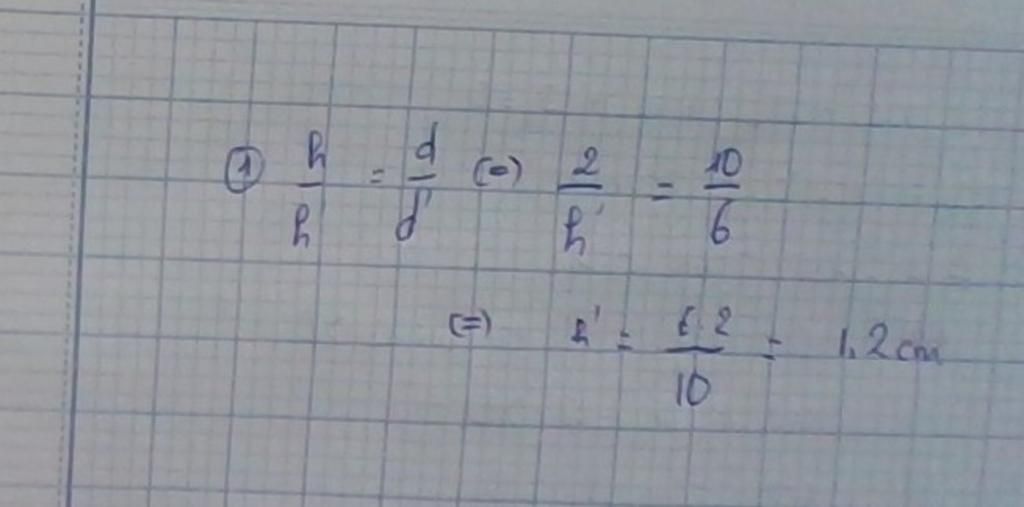 ① h/h = d/d' (=) 2/h' = 10/6
(=) h' = 6.2/10 = 1,2 cm